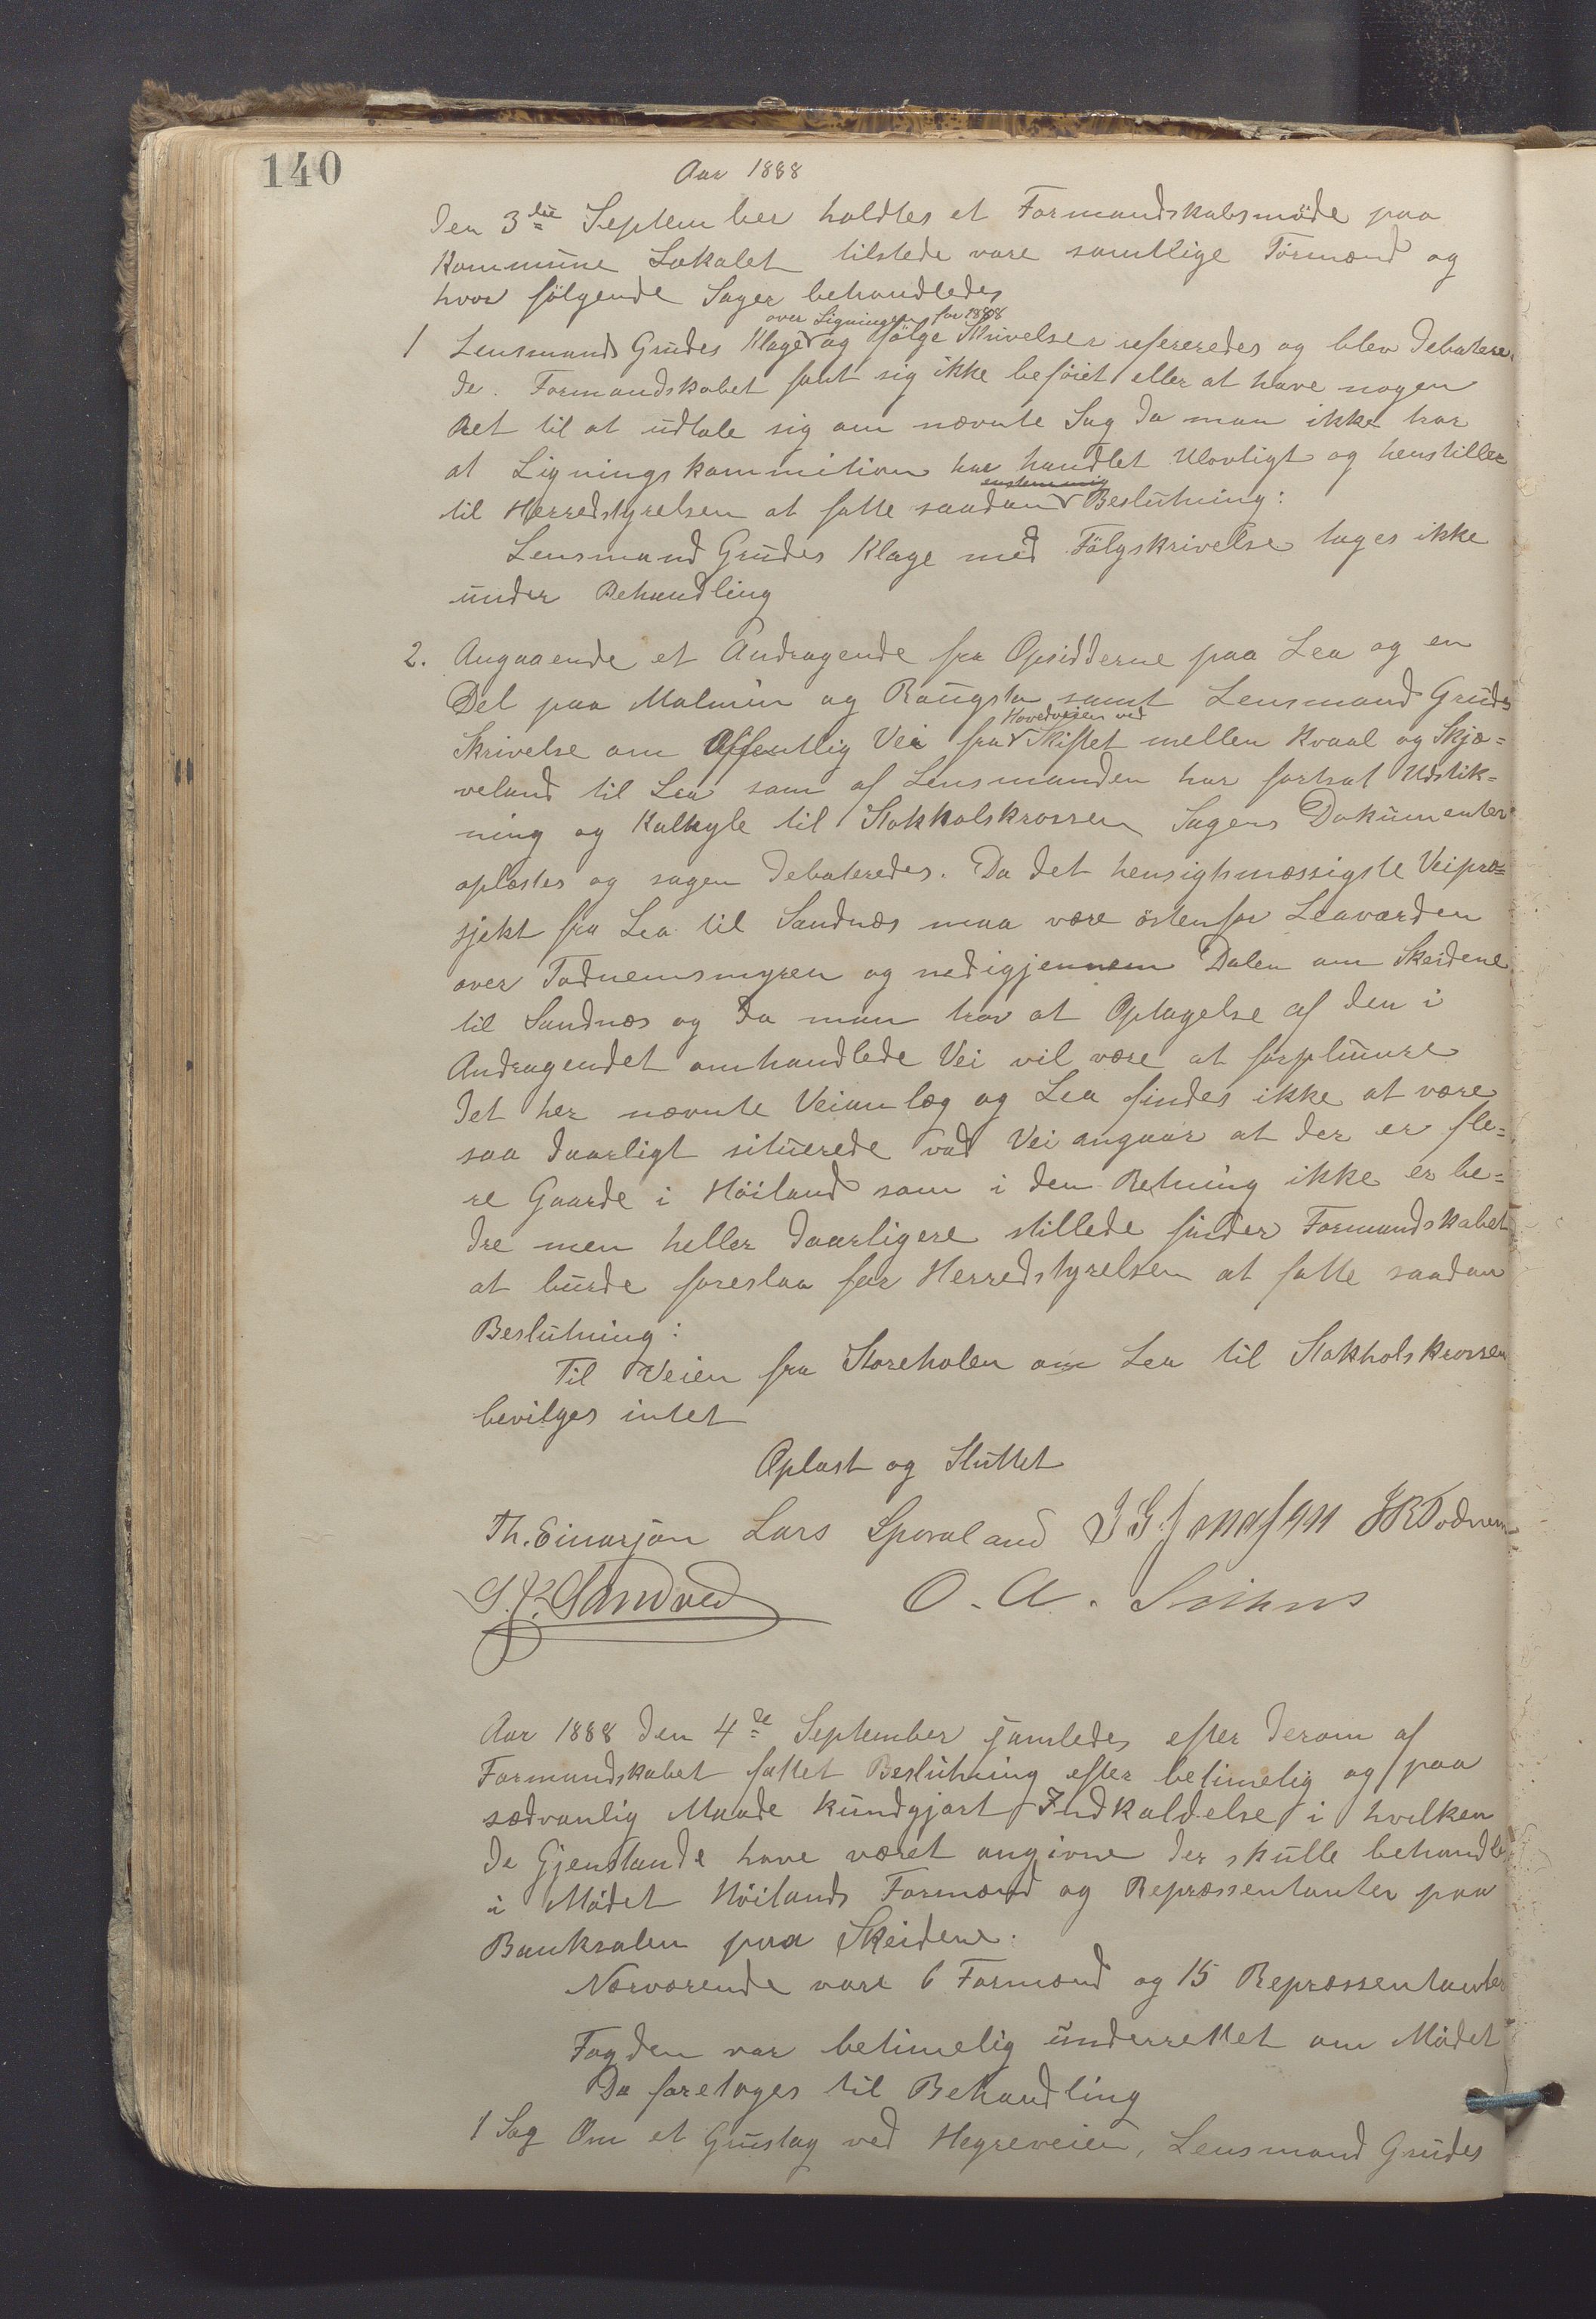 140
Aar 1888
Den 3die September holdtes et Formandskabsmöde paa
Kommune Lokalet tilstede vare samtlige Formænd og
hvor fölgende Sager behandledes
over Ligningen for 1888
1 Lensmands Grudes Klage og fölge Skrivelser refereredes og blev debatere
de. Formandskabet fant sig ikke beföiet eller at have nogen
Ret til at udtale sig om nævnte Sag da man ikke tror
at Ligningskommitionn har handlet Ulovligt og henstiller
enstemmig
til Herredstyrelsen at fatte saadan Beslutning:
Lensmand Grudes Klage med Fölgskrivelse tages ikke
under Behandling
2. Angaaende et Andragende fra Opsidderne paa Lea og en
Del paa Malmin og Raugsta samt Lensmand Grudes
Hovedveien ved
Skrivelse om Offentlig Vei fra Skiftet mellen Kvaal og Skjæ=
veland til Lea som af Lensmanden har fortsat Udstik=
ning og Kalkyle til Stokkalskrossen Sagens Dokumenter
oplæstes og sagen debateredes. Da det hensigtsmæssigste Veipro=
sjekt fra Lea til Sandnæs maa være östenfor Leavarden
over Todnemsmyren og nedigjennem Dalen om Skeidene
til Sandnæs og da man trov at Optagelse af den i
Andragendet omhandlede Vei vil være at forplumre
det her nævnte Veianlæg og Lea findes ikke at være
saa daarligt situerede vad Vei angaar at der er fle=
re Gaarde i Höiland som i den Retning ikke er be=
dre men heller daarligere stillede finder Formandskabet
at burde foreslaa for Herredstyrelsen at fatte saadan
Beslutning:
Til Veien fra Storeholen om Lea til Stokholskrossen
bevilges intet
Oplæst og Sluttet
Th. Einarsøn Lars Sporaland J G Jonassen JB Todnem
S. P. Sandved O. A.
Aar 1888 den 4de September samledes efter derom af
Formandskabet fattet Beslutning efter betimelig og paa
sædvanlig Maade kundgjort Indkaldelse i hvilken
de Gjenstande have været angivne der skulle behandle
i Mödet Höilands Formænd og Repræssentanter paa
Banksalen paa Skeidene.
Nærværende vare 6 Formænd og 15 Repræssentanter
Fogden var betimelig underrettet om Mödet
Da foretoges til Behandling
1 Sag Om et Grustag ved Hegreveien, Lensmand Grudes